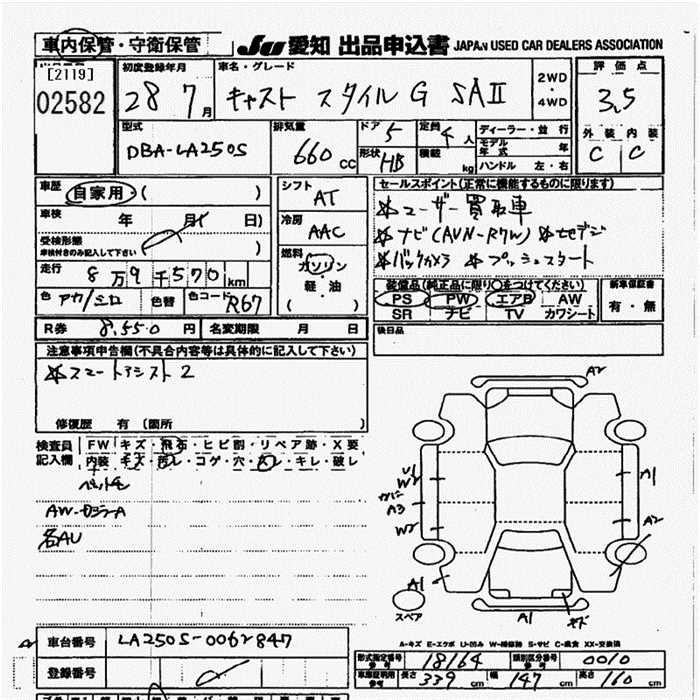 車内保管・守衛保管 JU 愛知 出品申込書 JAPAN USED CAR DEALERS ASSOCIATION
[2119]
02582
初度登録年月
28 7月
車名・グレード
キャスト スタイル G SAⅡ
2WD
・
4WD
評価点
3.5
外装 内装
C C
型式
DBA-LA250S
排気量
660 cc
ドア 5
形状 HB
定員 4人
積載 kg
ディーラー・並行
モデル年式 年
ハンドル 左・右
車歴 自家用 ( )
車検 年 月( 日)
受検形態
車検付きのみ記入して下さい ( )
走行 8万9千570km
色 アカ/シロ 色替 色コード R67
R券 8,550円 名変期限 月 日
シフト
AT
冷房
AAC
燃料
ガソリン
・
軽・油
( )
セールスポイント(正常に機能するものに限ります)
※ユーザー買取車
※ナビ(AVN-R7W) ※地デジ
※バックカメラ ※プッシュスタート
装備品(純正品に限り○をつけてください)
PS PW エアB AW
SR ナビ TV カワシート
新車保証書
有・無
後日品
注意事項申告欄(不具合内容等は具体的に記入して下さい)
※スマートアシスト2
修復歴 有(箇所 )
検査員記入欄
FW キズ・飛石・ヒビ割・リペア跡・X要
内装 キズ・汚レ・コゲ・穴・スレ・キレ・破レ
ペットモ
AW-ガリキズA
各AU
A2
U1
W2
カバー
A3
W2
A1
A1
A2
A1
キド
スペア
A-キズ E-エクボ U-凹み W-補修跡 S-サビ C-腐食 XX-交換済
車台番号 LA250S-0062847
登録番号
形式指定番号 参考 18164 類別区分番号 参考 0010
車庫証明用 参考 長さ 339 cm 幅 147 cm 高さ 160 cm